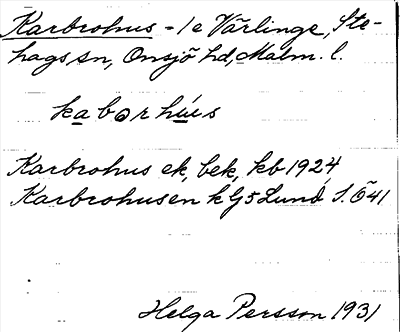 Karbrohus - 1e Värlinge, Ste-
hags sn, Onsjö hd, Malm. l.
kabərhúus
Karbrohus ek, bek, kb 1924
Karbrohusen k G5 Lund S. Ö 41
Helga Persson 1931